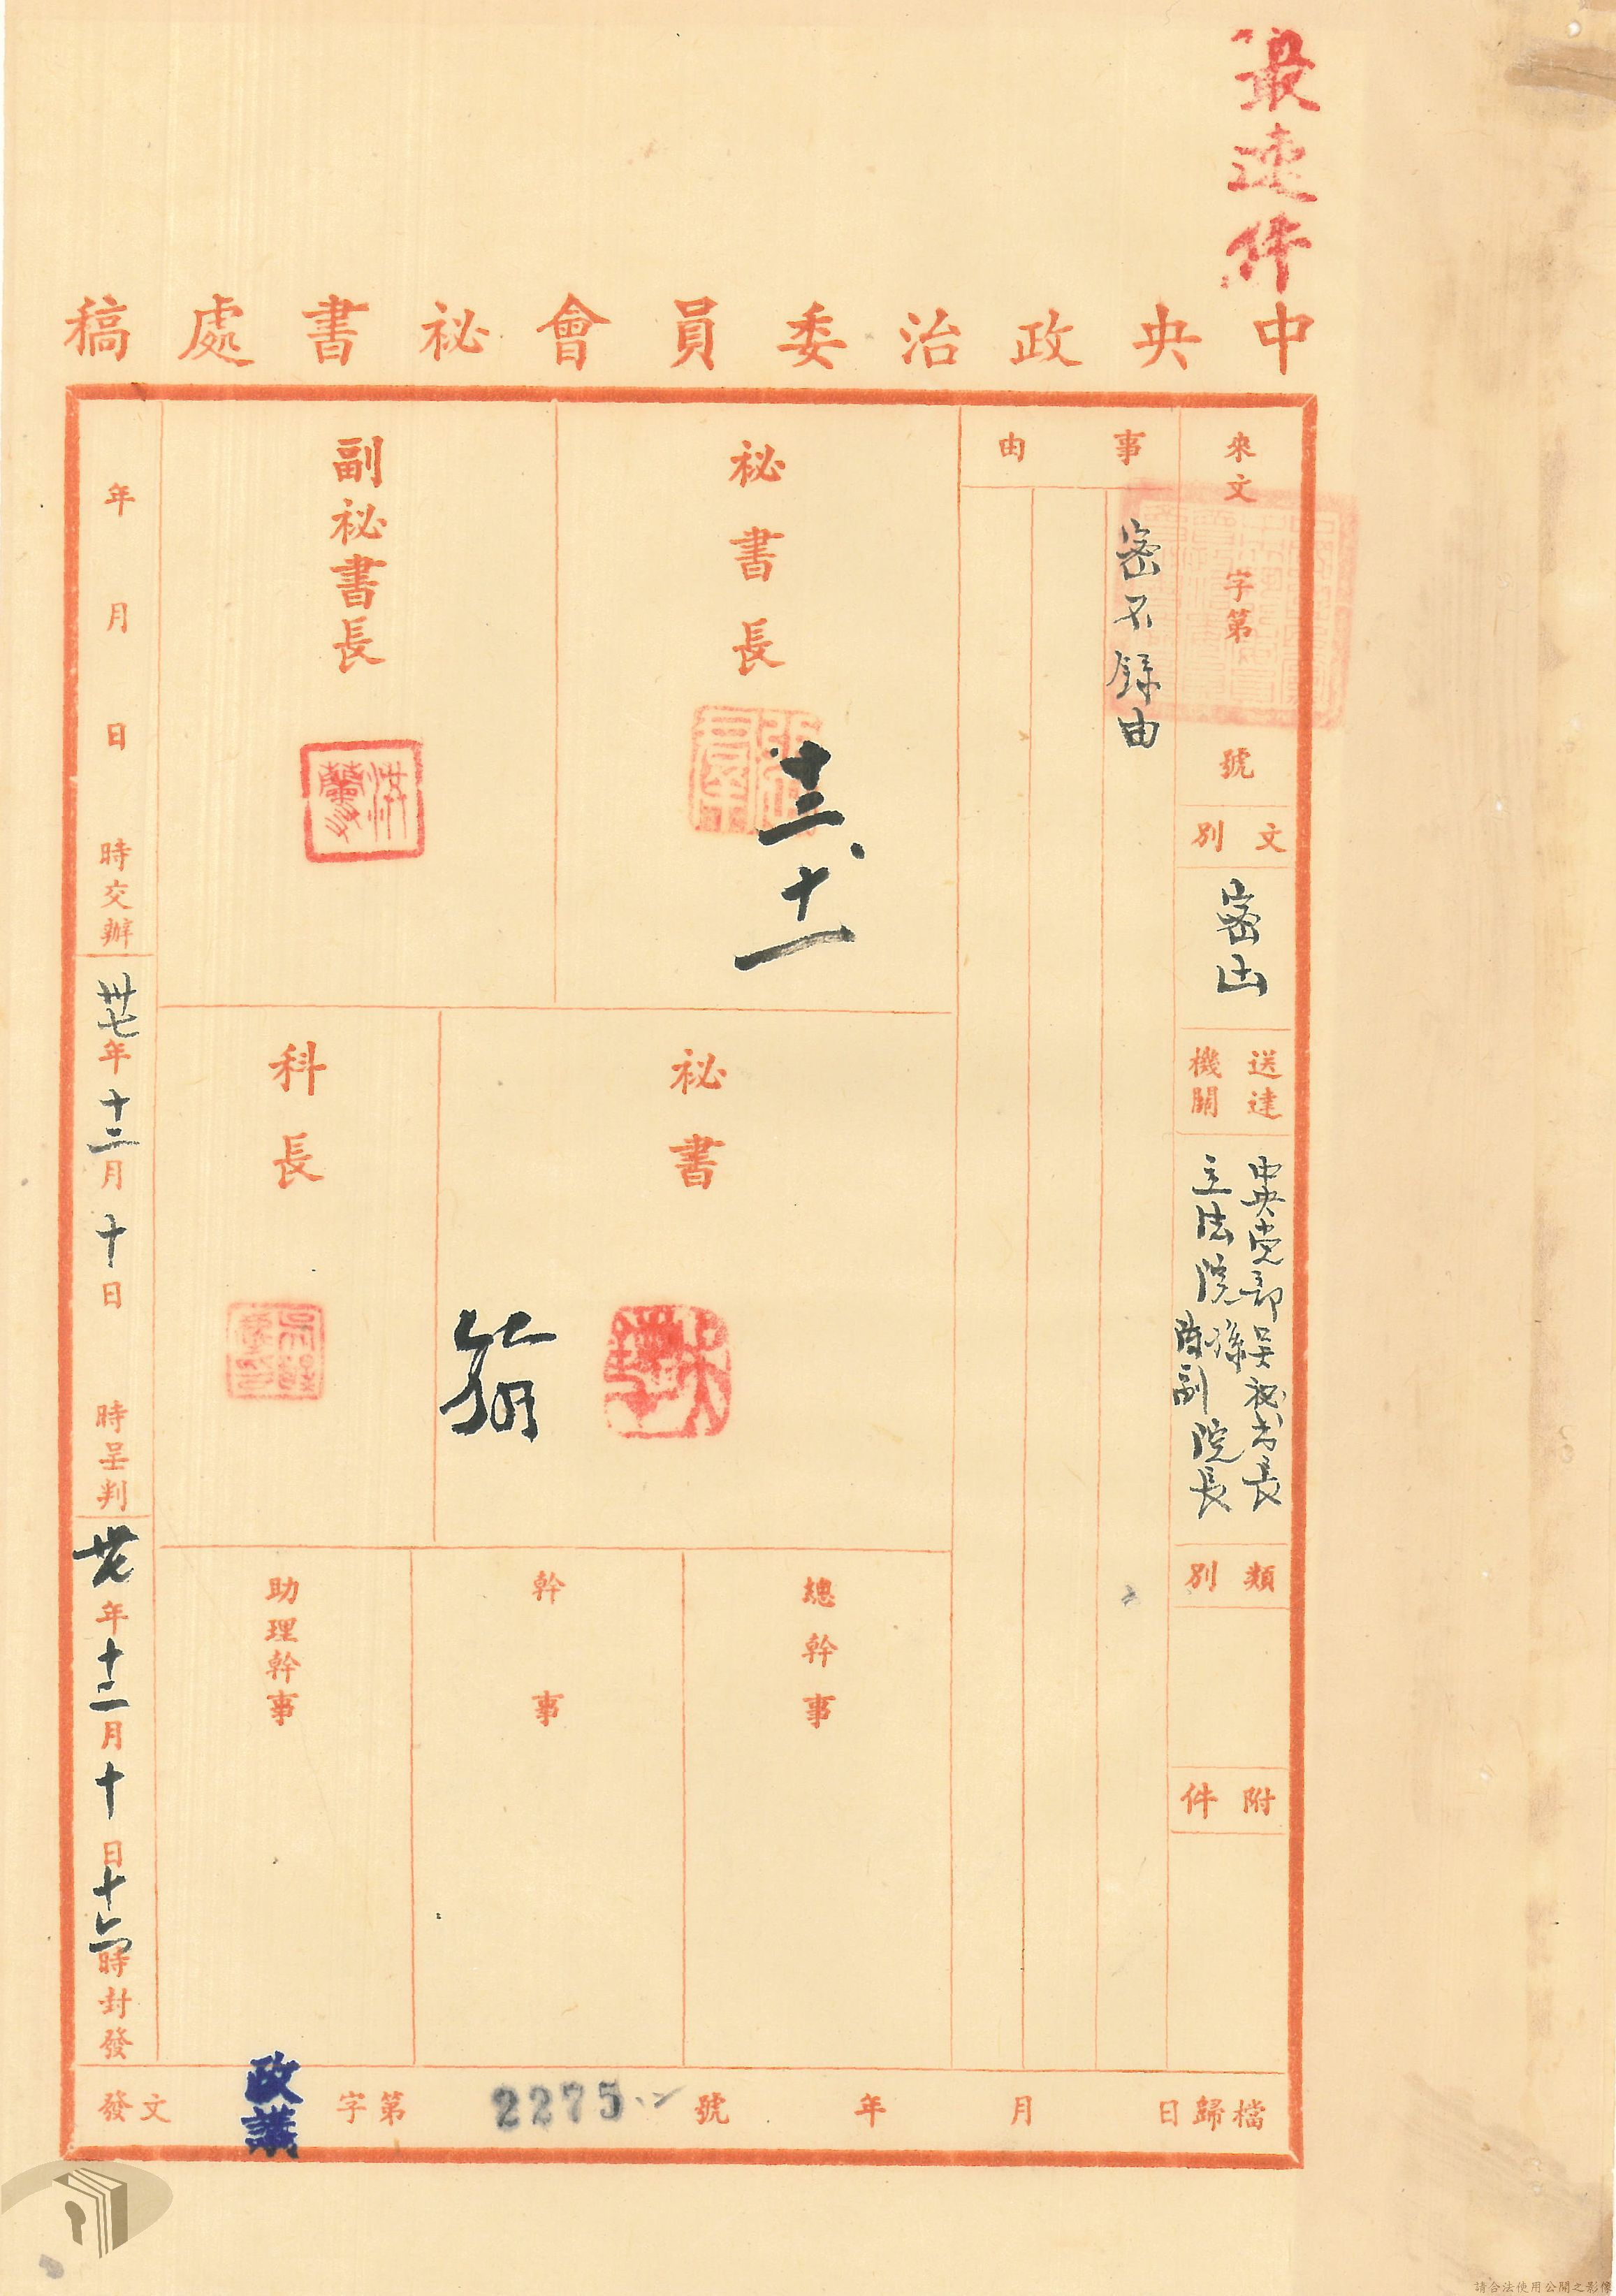 最速件
中央政治委員會祕書處稿
來文 字第 號
文別
密函
送達機關
中央党部吳秘書長
立法院孫
陳副院長
類別
附件
事由
密不錄由
祕書長
十二、十一
副祕書長
祕書
科長
總幹事
幹事
助理幹事
年 月 日 時交辦
卅七年十二月十日 時呈判
卅七年十二月十日十六時封發
發文 政議 字第 2275 號 年 月 日歸檔
請合法使用公開之影像